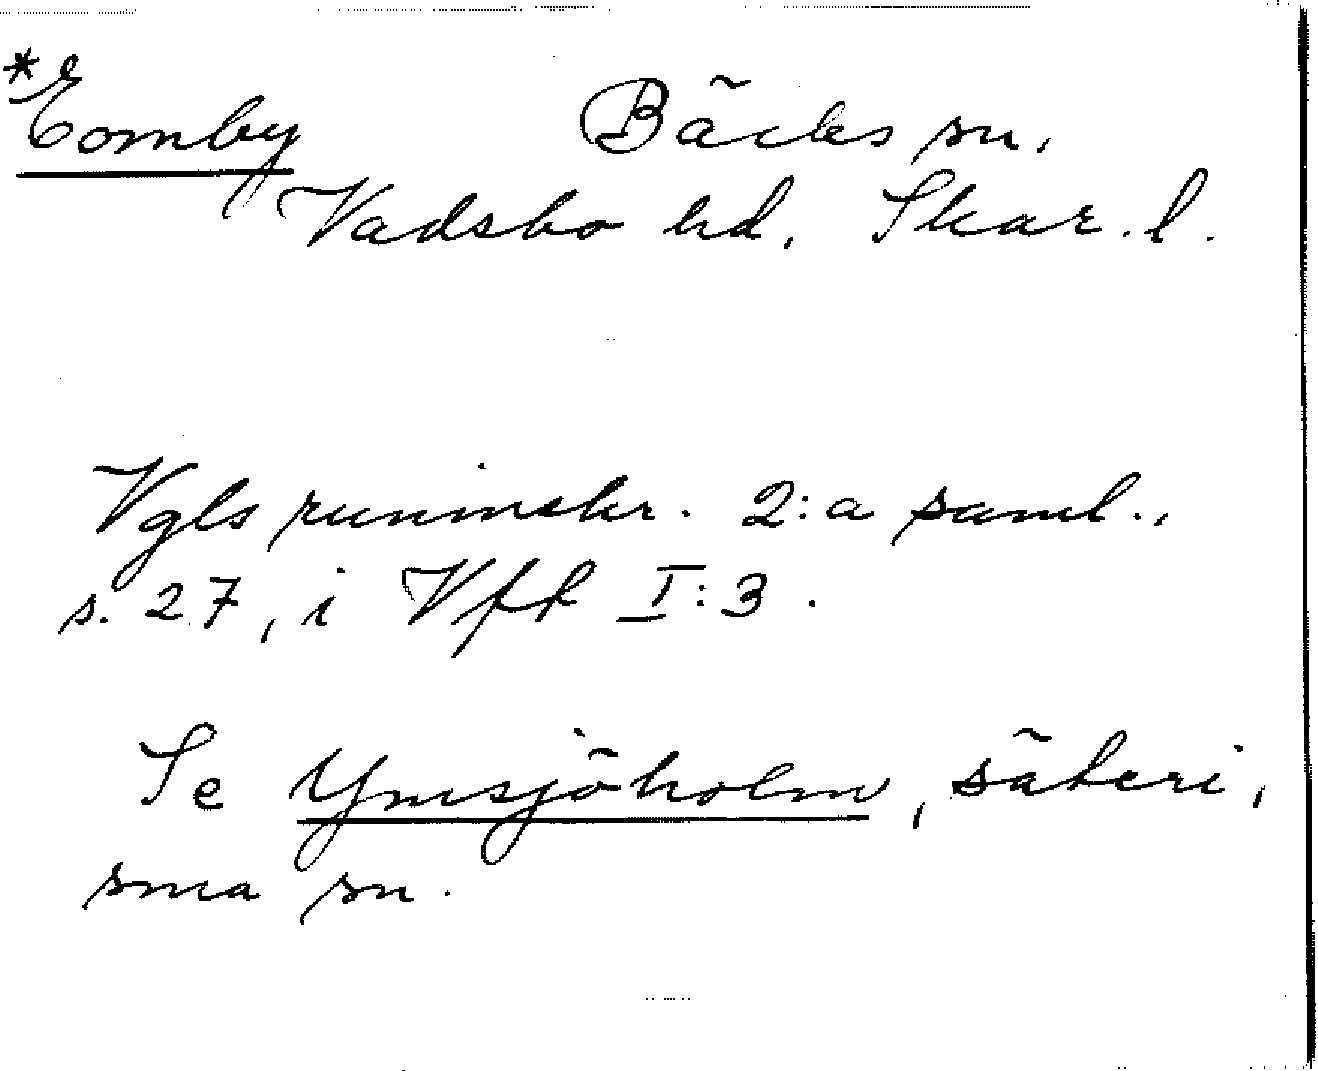 *Eomby Bäcks sn.
Vadsbo hd. Skar. l.
Vgls runinskr. 2:a saml.,
s. 27, i Vff I:3.
Se Ymsjöholm, säteri,
sma sn.